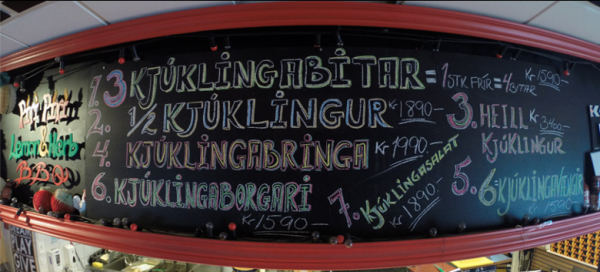 Piri Piri
Lemon & Herb
B.B.Q
1. 3 KJÚKLINGABITAR = 1 STK FRÍR = 4 BITAR Kr 1590-
2. 1/2 KJÚKLINGUR Kr 1890-
3. HEILL KJÚKLINGUR Kr 3400-
4. KJÚKLINGABRINGA Kr 1990-
5. 6 KJÚKLINGAVÆNGIR
6. KJÚKLINGABORGARI
Kr 1590-
7. KJÚKLINGASALAT
Kr 1890-